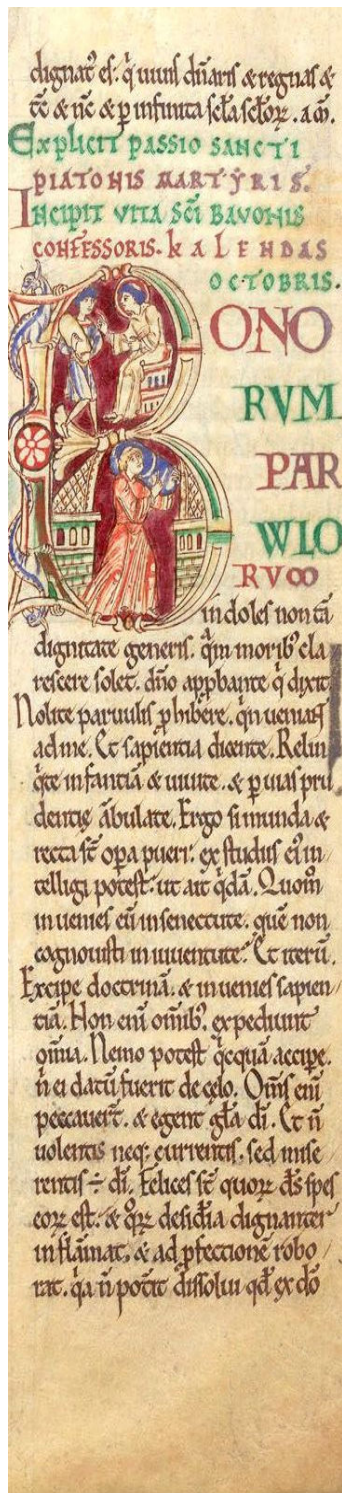 dignat᷒ es. q̇ uiuis d̄naris & regnas &
t̄c & n̄c & ꝑ infinita sc̄la sc̄loꝝ. am̄.
Explicit passio sancti
piatonis martyris.
Incipit vita sc̄i bavonis
confessoris. kalendas
octobris.
BONO
RVM
PAR
WLO
RVM
indoles non tā
dignitate generis. q̄m morib᷒ cla
rescere solet. dn̄o app̄bante q̇ dixit
Nolite paruulis ꝓhibere. q̇n ueniant
ad me. Et sapientia dicente. Relin
q̇te infantiā & uiuite. & ꝑ uias pru
dentię ābulate. Ergo si munda &
recta st̄ opa pueri. ex studiis ei᷒ in
telligi potest. ut ait q̇dā. Quom̄
inuenies eū in senectute. quē non
cognouisti in iuuentute. Et iterū.
Excipe doctrinā. & inuenies sapien
tiā. Non eni̅ omīb᷒. expediunt
omīa. Nemo potest q̇cquā accipe.
n̄ ei datū fuerit de cęlo. Om̄s eni̅
peccauer̄t. & egent gl̄a dī. Et n̄
uolentis neq; currentis. sed mise
rentis ÷ dī. Felices st̄ quoꝝ d̄s spes
eoꝝ est. & q̊ꝝ desidīa dignanter
inflāmat. & ad ꝑfectionē robo
rat. q̇a n̄ pot̄it dissolui qđ ex dō